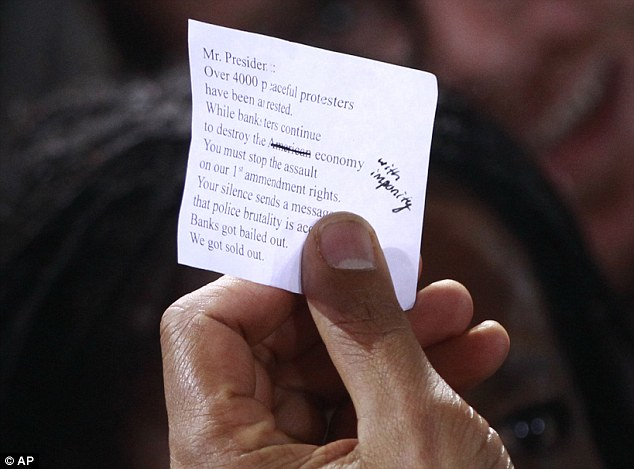 Mr. Presiden ::
Over 4000 p aceful protesters
have been arrested.
While banksters continue
to destroy the American economy
with
impunity
You must stop the assault
on our 1st ammendment rights.
Your silence sends a message
that police brutality is acc
Banks got bailed out.
We got sold out.
© AP